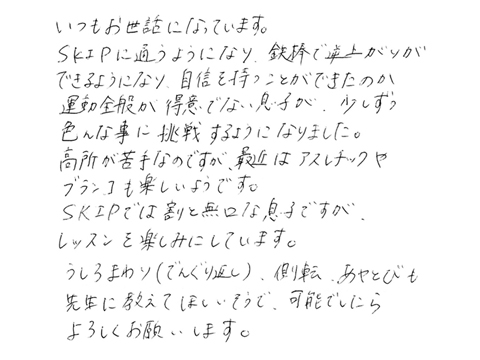 いつもお世話になっています。
SKIPに通うようになり、鉄棒で逆上がりが
できるようになり、自信を持つことができたのか
運動全般が得意でない息子が、少しずつ
色んな事に挑戦するようになりました。
高所が苦手なのですが、最近はアスレチックや
ブランコも楽しいようです。
SKIPでは割と無口な息子ですが、
レッスンを楽しみにしています。
うしろまわり(でんぐり返し)、側転、あやとびも
先生に教えてほしいそうで、可能でしたら
よろしくお願いします。